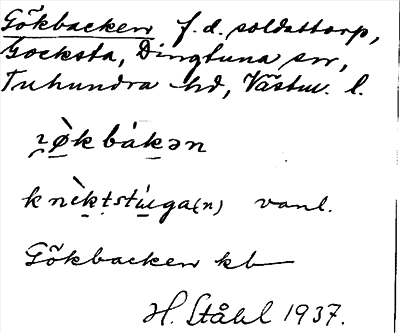 Gökbacken f.d. soldattorp,
Gocksta, Dingtuna sn,
Tuhundra hd, Västm. l.
ɪø̀kbákən
knɛ̀ktstúga(n) vanl.
Gökbacken kb
H. Ståhl 1937.